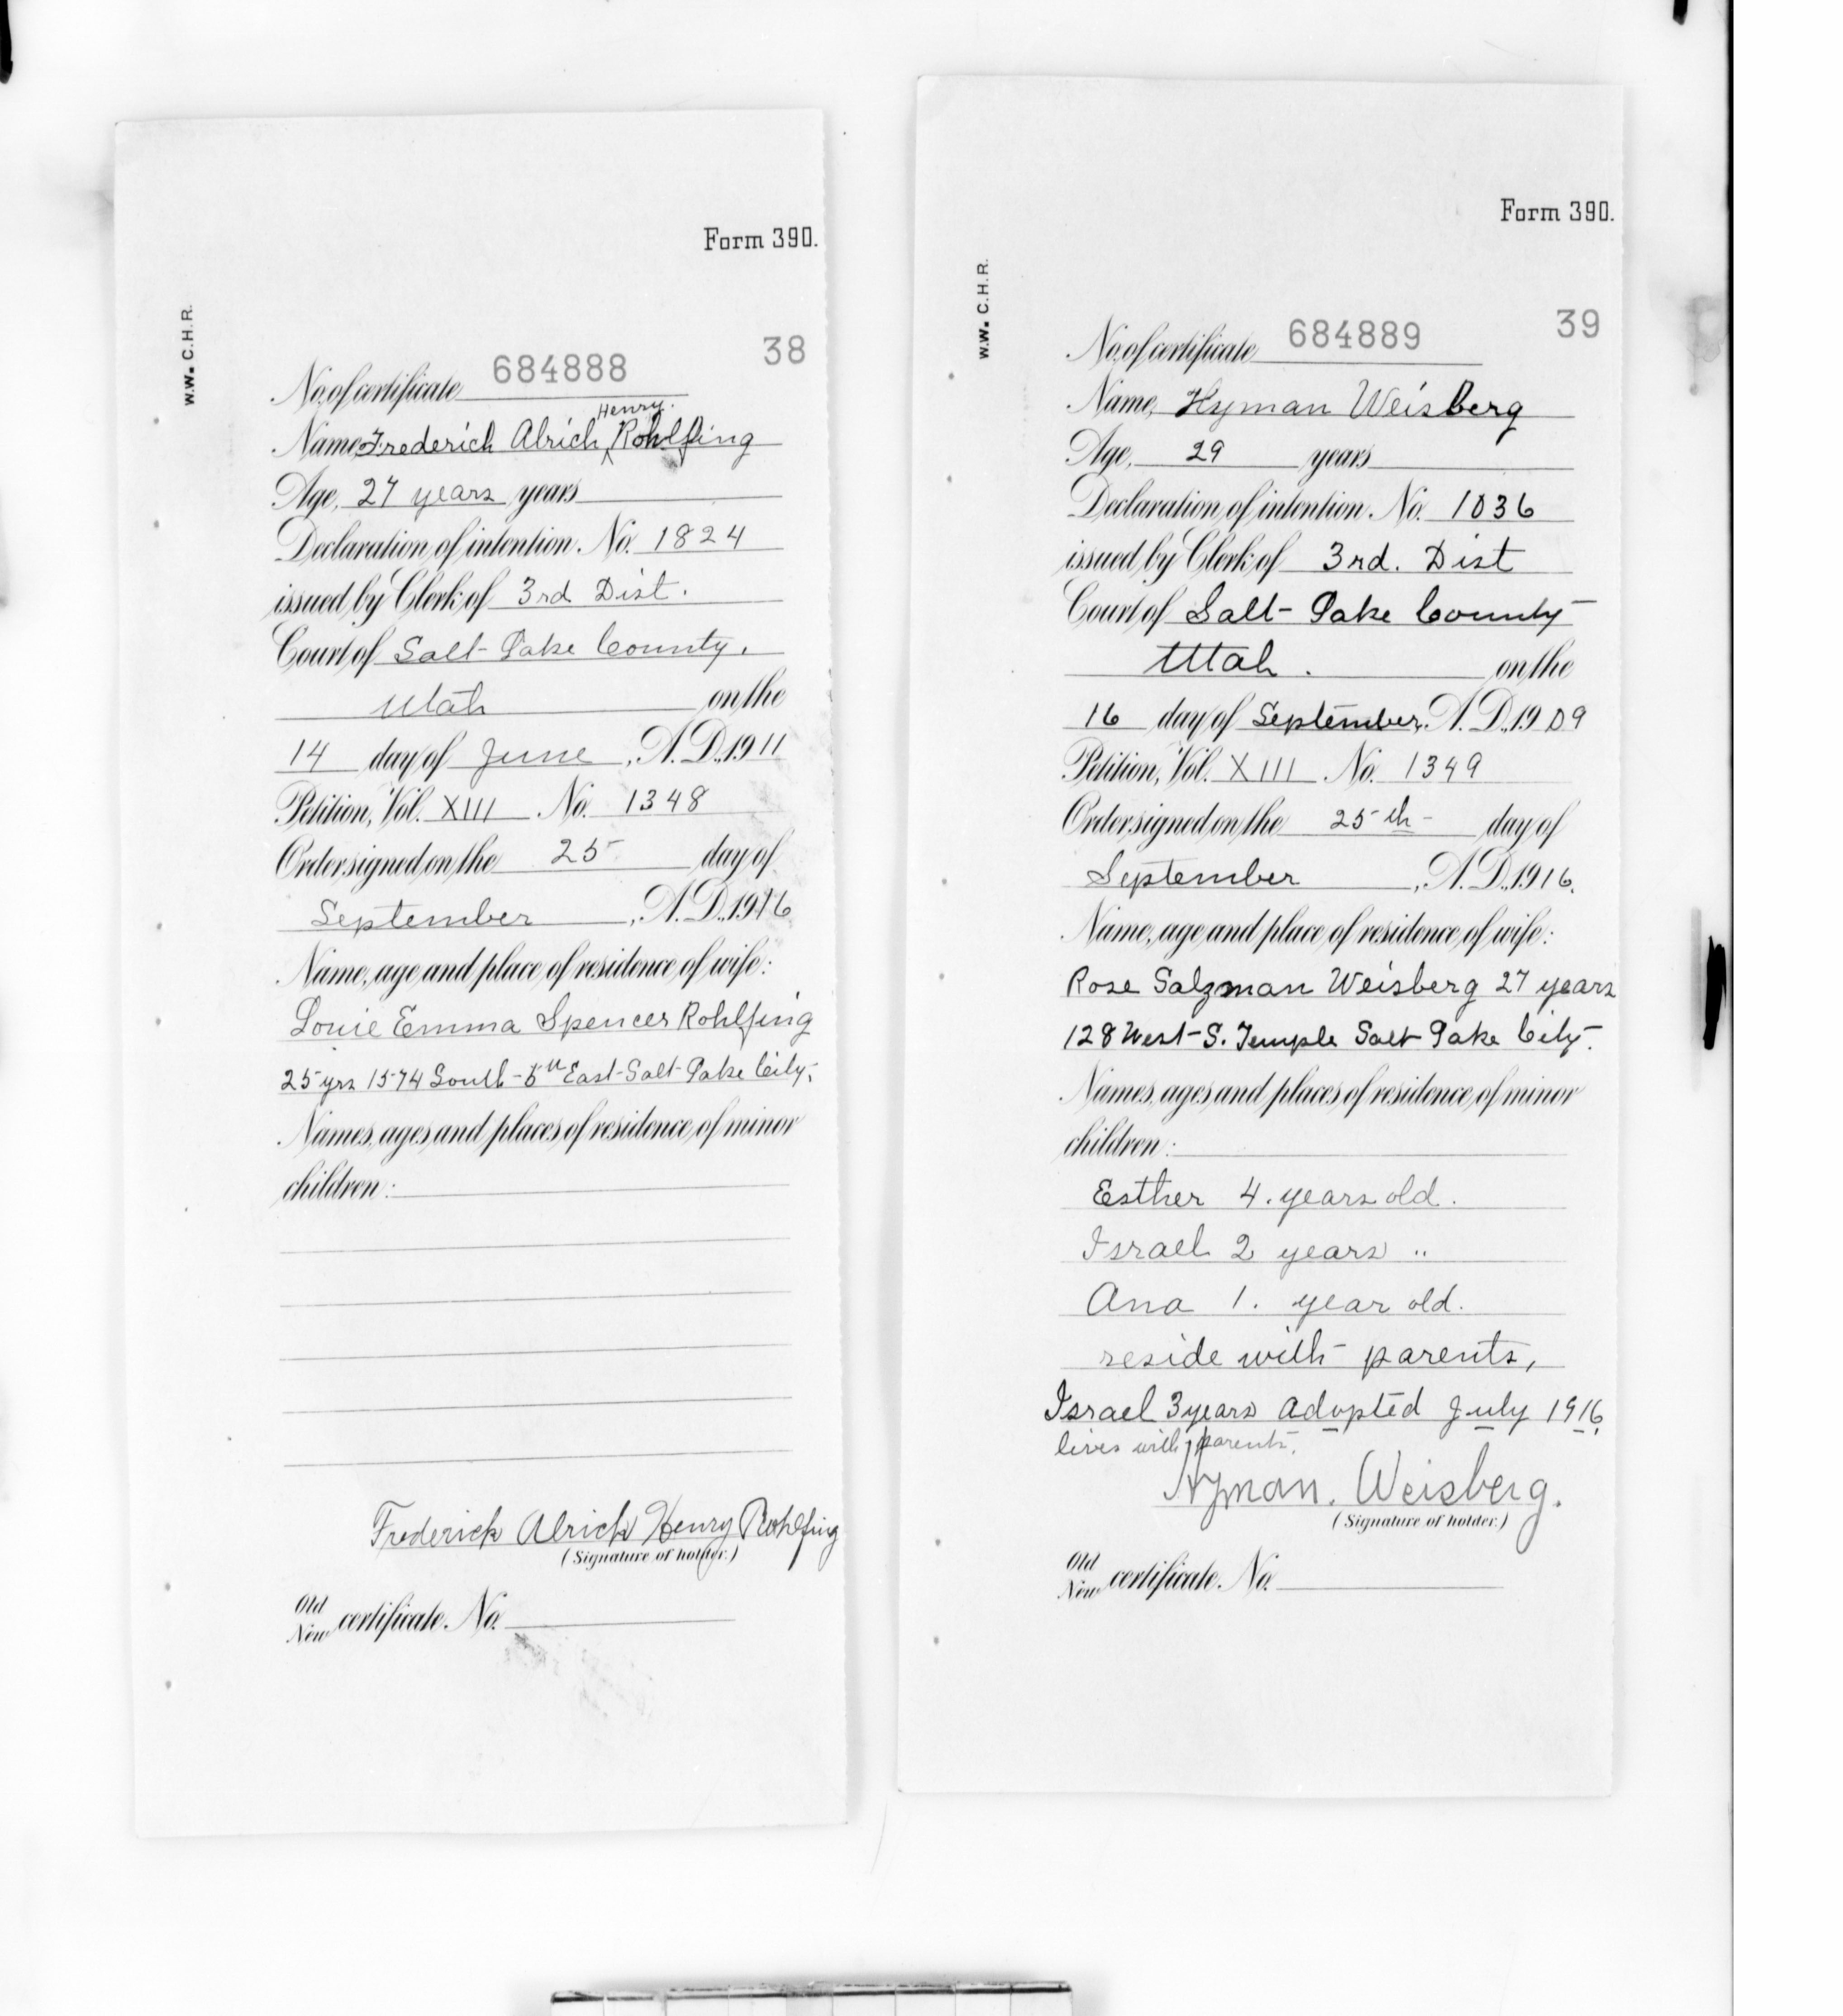 Form 390.
W.W. C.H.R.
38
No. of certificate 684888
Henry.
Name, Frederich Alrich ‸ Rohlfing
Age, 27 years years
Declaration of intention. No. 1824
issued by Clerk of 3rd Dist.
Court of Salt Lake County.
Utah on the
14 day of June, A.D. 1911
Petition, Vol. XIII No. 1348
Order signed on the 25 day of
September, A.D. 1916
Name, age and place of residence of wife:
Louie Emma Spencer Rohlfing
25 yrs 1574 South - 5th East Salt Lake City.
Names, ages and places of residence of minor
children:
Frederick Alrich Henry Rohlfing
(Signature of holder.)
Old
New certificate. No.
Form 390.
W.W. C.H.R.
39
No. of certificate 684889
Name, Hyman Weisberg
Age, 29 years
Declaration of intention. No. 1036
issued by Clerk of 3rd. Dist
Court of Salt Lake County
Utah. on the
16 day of September, A.D. 1909
Petition, Vol. XIII No. 1349
Order signed on the 25th day of
September, A.D. 1916.
Name, age and place of residence of wife:
Rose Salzman Weisberg 27 years
128 West S. Temple Salt Lake City.
Names, ages and places of residence of minor
children:
Esther 4. years old.
Israel 2 years "
Ana 1. year old.
reside with parents,
Israel 3 years adopted July 1916.
lives with parents.
Hyman. Weisberg.
(Signature of holder.)
Old
New certificate. No.